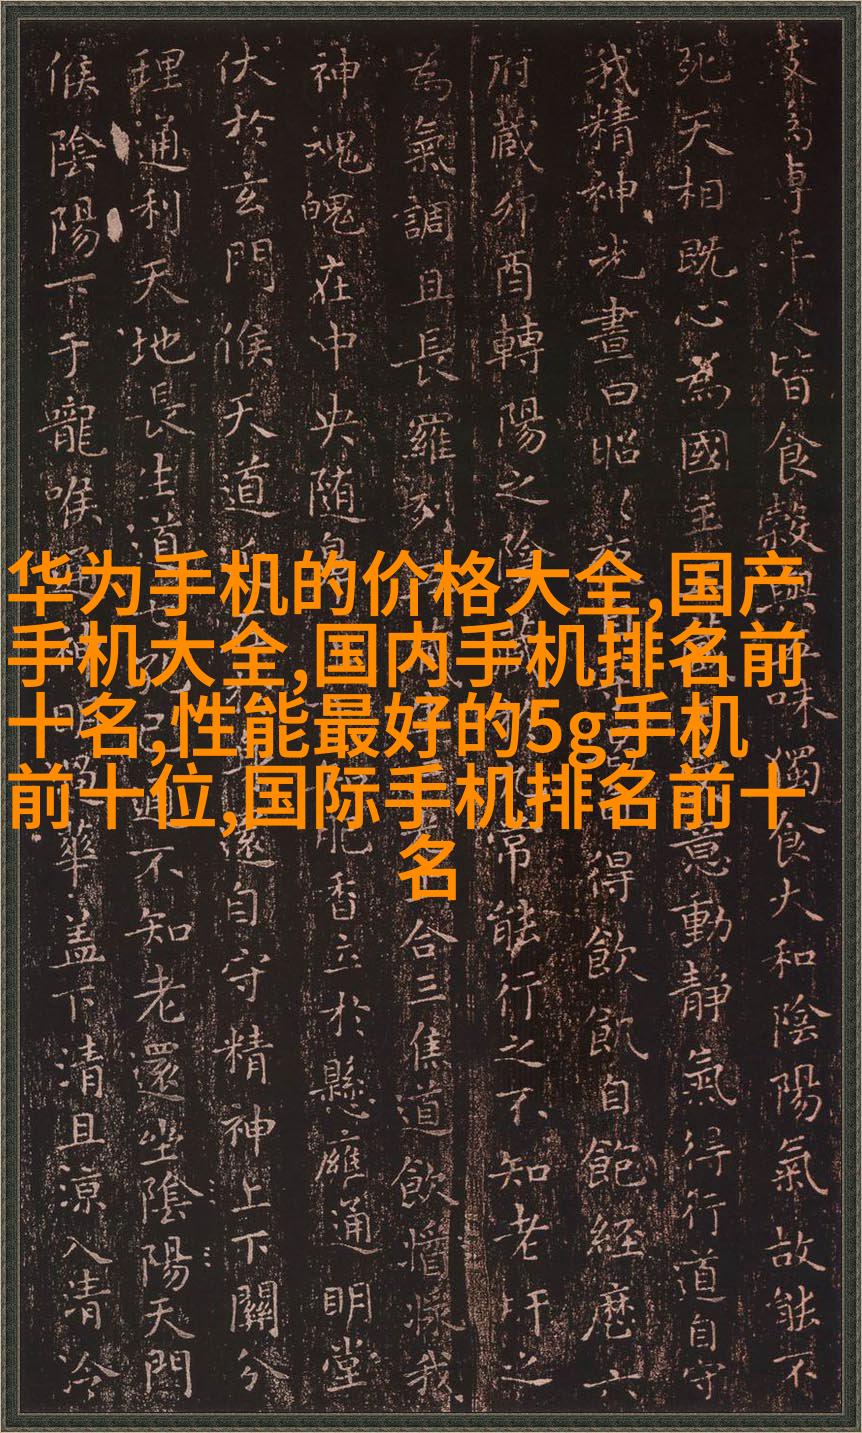 华为手机的价格大全,国产
手机大全,国内手机排名前
十名,性能最好的5g手机
前十位,国际手机排名前十
名
人皆食穀與味獨食大和陰陽氣故能不
死天相既心為國主意動靜氣得行道自守
我精神光晝日昭得飲飢自飽經歷六
府藏卯酉轉陽之陰常能行之不知老肝之
為氣調且長羅列合三焦道飲醬漿我
神魂魄在中央随鼻肥香立於懸膺通明堂
伏於玄門候天道還自守精神上下關分
理通利天地長生道不知老還坐陰陽天門
候陰陽下于嚨喉華盖下清且涼入清冷